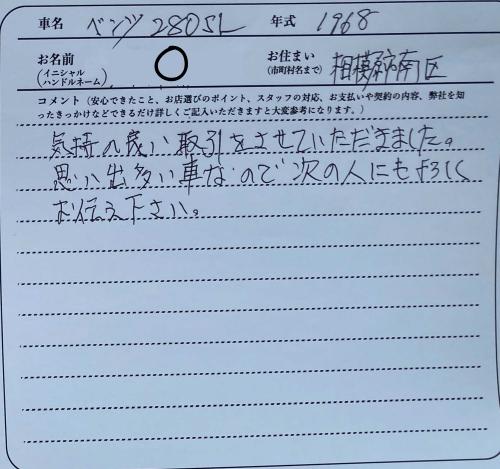 車名 ベンツ 280SL 年式 1968
お名前 (イニシャル ハンドルネーム) O お住まい (市町村名まで) 相模原市南区
コメント(安心できたこと、お店選びのポイント、スタッフの対応、お支払いや契約の内容、弊社を知
ったきっかけなどできるだけ詳しくご記入いただきますと大変参考になります。)
気持の良い取引をさせていただきました。
思い出多い車なので次の人にもよろしく
お伝え下さい。